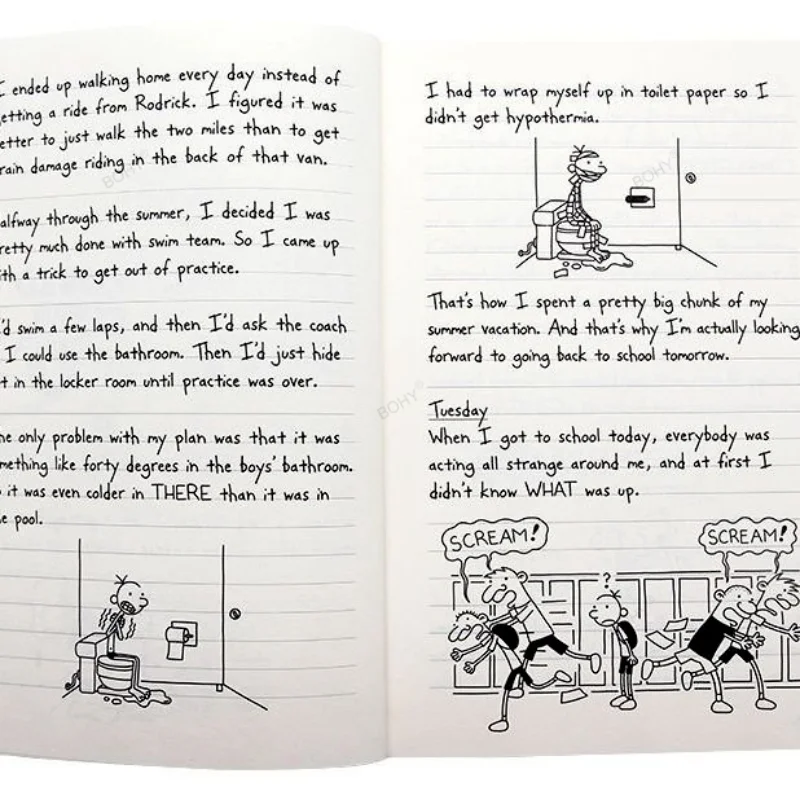 I ended up walking home every day instead of
etting a ride from Rodrick. I figured it was
etter to just walk the two miles than to get
rain damage riding in the back of that van.
alfway through the summer, I decided I was
retty much done with swim team. So I came up
ith a trick to get out of practice.
'd swim a few laps, and then I'd ask the coach
I could use the bathroom. Then I'd just hide
t in the locker room until practice was over.
he only problem with my plan was that it was
mething like forty degrees in the boys' bathroom.
it was even colder in THERE than it was in
e pool.
I had to wrap myself up in toilet paper so I
didn't get hypothermia.
That's how I spent a pretty big chunk of my
summer vacation. And that's why I'm actually looking
forward to going back to school tomorrow.
Tuesday
When I got to school today, everybody was
acting all strange around me, and at first I
didn't know WHAT was up.
SCREAM!
SCREAM!
?
BOHY®
BOHY®
BOHY®